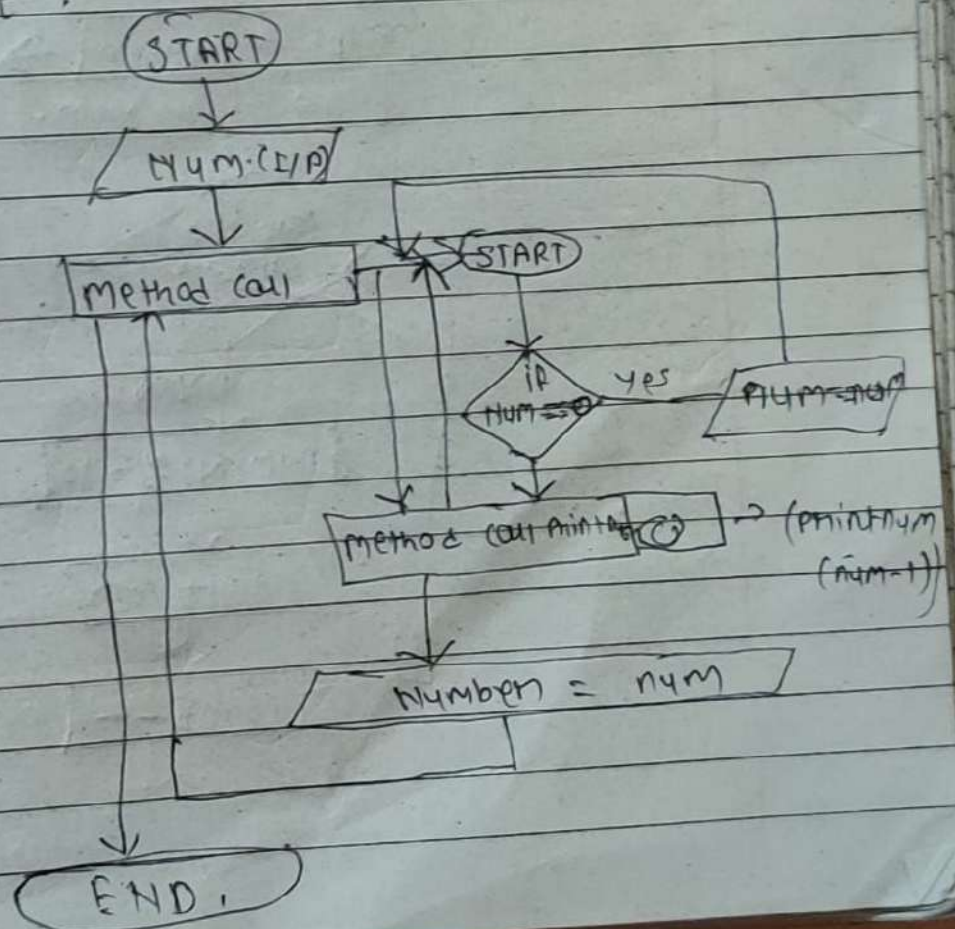 START
Num.(I/P)
Method Call
START
if
Num == 0
yes
num=num
method call print
→ (printnum
(num-1))
Number = num
END.